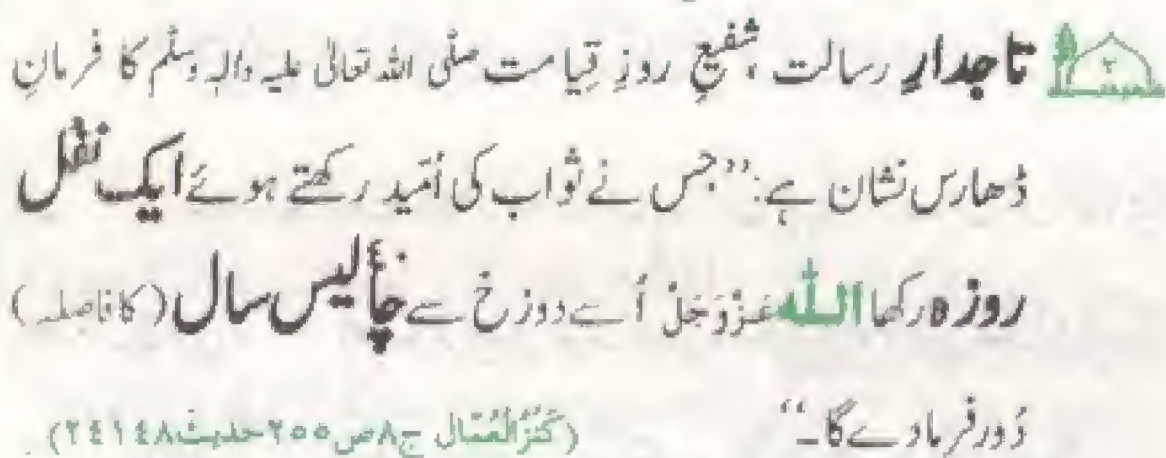 ۲ تاجدارِ رسالت، شفیعِ روزِ قِیامت صلَّی اللہ تعالٰی علیہ والہٖ وسلَّم کا فرمانِ
ڈھارس نشان ہے: ’’جس نے ثواب کی اُمّید رکھتے ہوئے ایک نفْل
روزہ رکھا اللہ عَزَّوَجَلَّ اُسے دوزخ سے چالیس سال (کا فاصِلہ)
دُور فرما دے گا۔‘‘ (کَنْزُالْعُمّال ج۸ص۲۵۵حدیث۲٤۱٤۸)